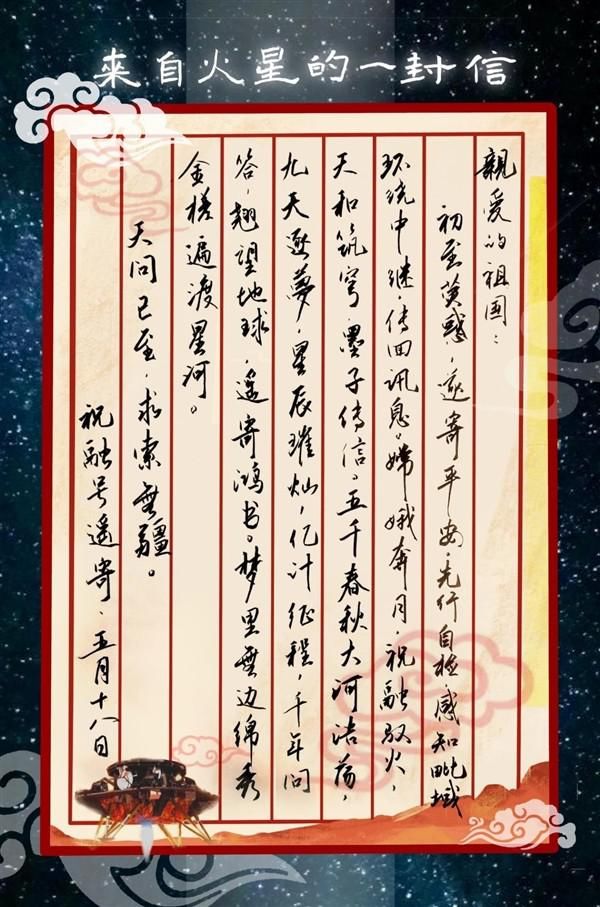 来自火星的一封信
親爱的祖国：
初至荧惑，遥寄平安，先行自检，感知毗域
环绕中继，传回讯息。嫦娥奔月，祝融驭火，
天和筑穹，墨子传信。五千春秋大河浩荡，
九天逐夢，星辰璀灿，亿计征程，千年问
答，翘望地球，遥寄鸿书。梦里無边绵秀
金槎遍渡星河。
天问已至，求索無疆。
祝融号遥寄、五月十八日